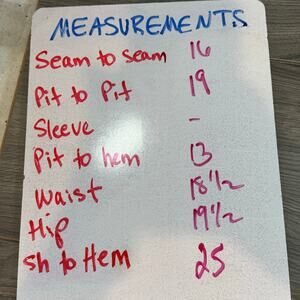 MEASUREMENTS
Seam to seam 16
Pit to Pit 19
Sleeve -
Pit to hem 13
Waist 18 1/2
Hip 19 1/2
Sh to Hem 25